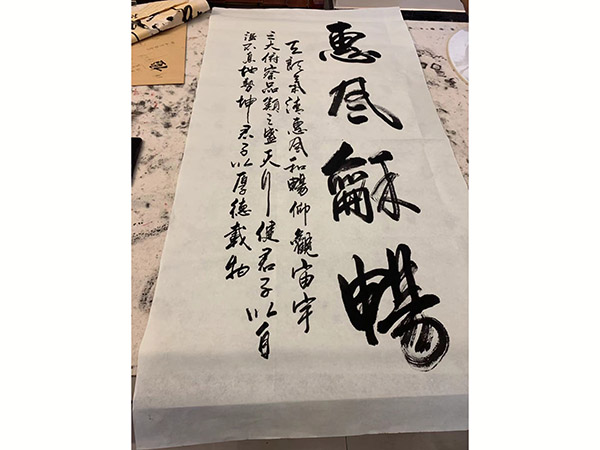 惠風龢暢
天朗氣清惠風和暢仰觀宙宇
之大俯察品類之盛天行健君子以自
强不息地勢坤君子以厚德載物